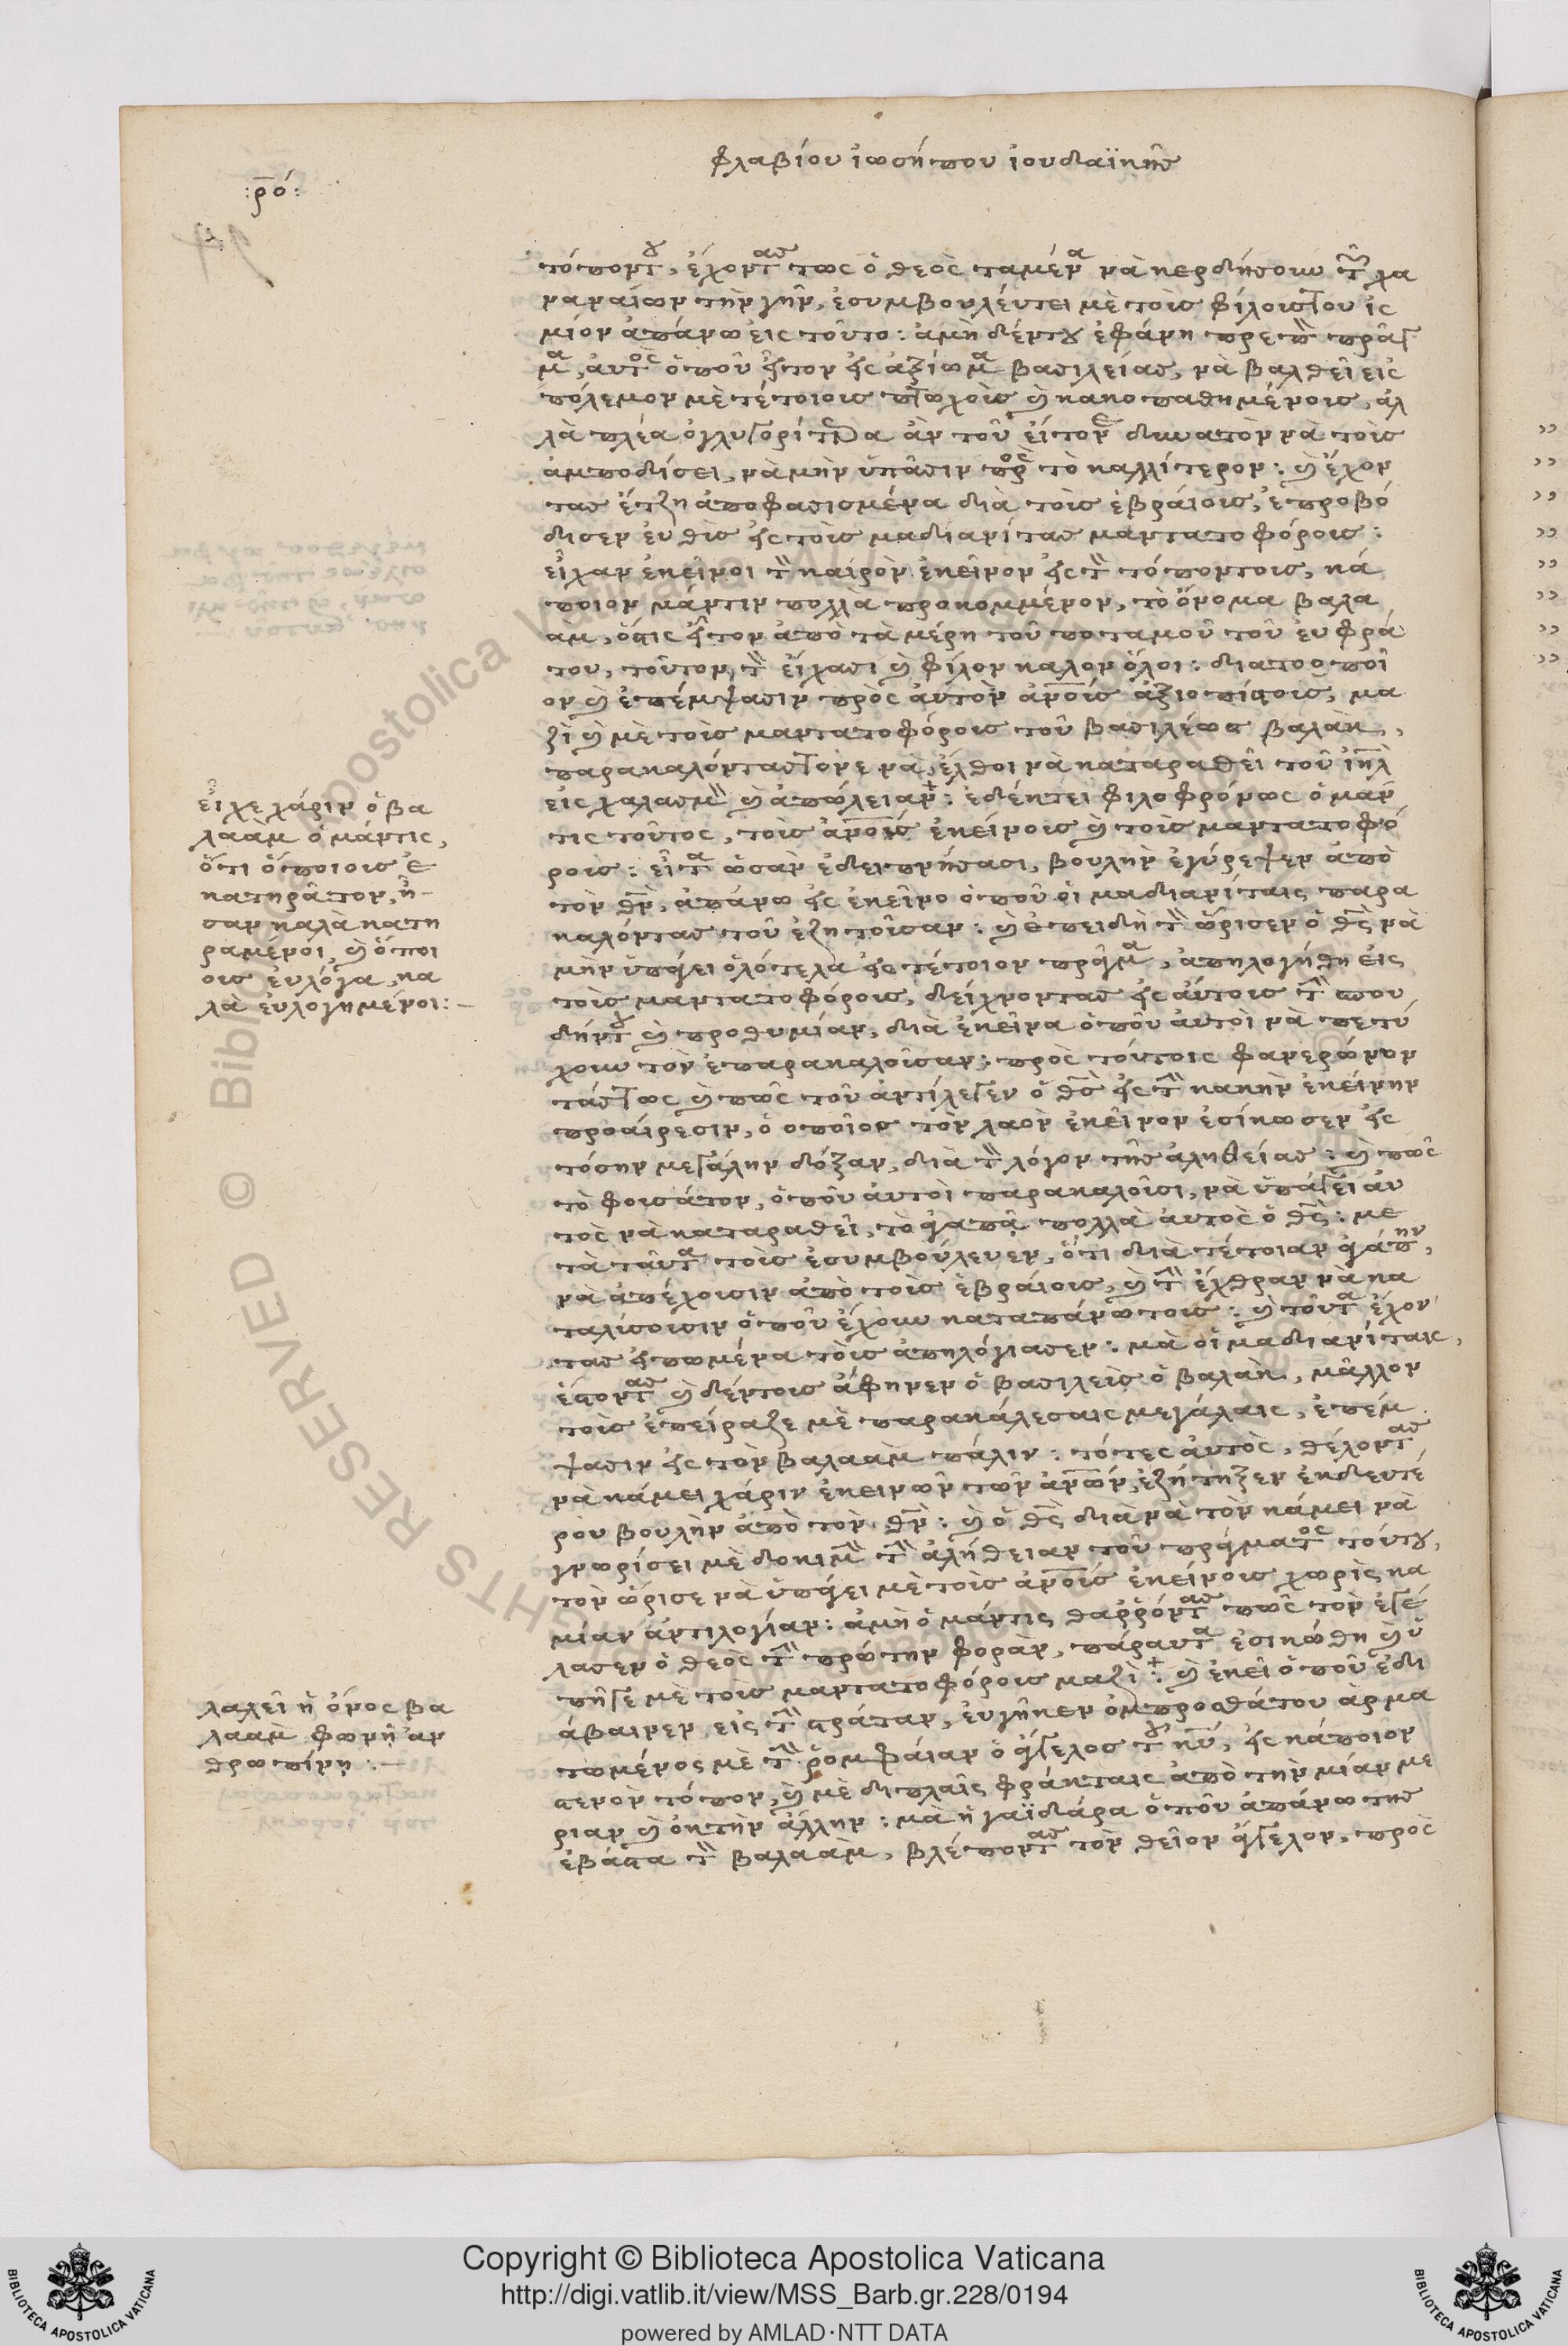 φλαβίου ἰωσήπου ἰουδαϊκῆς
:ρό:
τόπον του, ἔχοντας πως ὁ θεὸς ταμένα νὰ κερδήσουν τῶν χα
ναναίων τὴν γῆν, ἐσυμβουλέυτει μὲ τοῖς φίλοις του ἰς
μίον ἀπάνω εἰς τοῦτο: ἀμὴ δέν του ἐφάνη πρεπὸ πρᾶγ
μα, αὐτὸς ὁποῦ ἦτον εἰς ἀξίωμα βασιλείας, νὰ βαλθεῖ εἰς
πόλεμον μὲ τέτοιοις πτωχοὶς καὶ κακοπαθημένοις, ἀλ
ἀμποδίσει, νὰ μὴν ὑπᾶσιν πρὸς τὸ καλλίτερον: καὶ ἔχον
τας ἔτζη ἀποφασισμένα διὰ τοῖς ἑβράιοις, ἐπροβό
δισεν ἐυθὶς εἰς τοῖς μαδιανίτας μαντατοφόροις:
εἶχαν ἐκεῖνοι τὸν καίρὸν ἐκεῖνον εἰς τὸν τόπον τοις, κά
ποιον μάντιν πολλὰ προκομμένον, τὸ ὄνομα βαλα
ὰμ, ὅςις ἦτον ἀπὸ τὰ μέρη τοῦ ποταμοῦ τοῦ ἐυφρά
του, τοῦτον τὸν εἴχασι καὶ φίλον καλον ὅλοι: διατοοποῖ
ον καὶ ἐπέμψασιν πρὸς ἀυτὸν ἀνοὶς ἀξιοπίςοις, μα
ζὶ καὶ μὲ τοὶς μαντατοφόροις τοῦ βασιλέως βαλὰκ,
παρακαλόντας τονε νὰ ἔλθοι νὰ καταραθεῖ τοῦ ἰηλ
εἰς χαλασμὸν καὶ ἀπώλειαν: ἐδέητει φιλοφρόνως ὁ μαν
τις τοῦτος, τοὶς ἀνοὶς ἐκείνοις καὶ τοὶς μαντατοφό
ροις: εἶτα ὡσὰν ἐδειπνήσασι, βουλὴν ἐγύρεψεν ἀπὸ
τὸν θν, ἀπάνω εἰς ἐκεῖνο ὁποῦ ὁι μαδιανίταις παρα
καλόντας τοῦ ἐζητοῖσαν: καὶ ἐπειδὴ τὸν ὥρισεν ὁ θς νὰ
μὴν ὑπάγει ὁλότελα εἰς τέτοιον πρᾶγμα, ἀπηλογήθη εἰς
τοὶς μαντατοφόροις, δείχνοντας εἰς ἀύτοις τὴν σπου
δήν του καὶ προθυμίαν, διὰ ἐκεῖνα ὁποῦ ἀυτοὶ νὰ πετύ
χουν τὸν ἐπαρακαλοῖσαν: πρὸς τούτοις φανερώνον
τάς τως καὶ πῶς τοῦ ἀντίλεγεν ὁ θς εἰς τὴν κακὴν ἐκείνην
προαίρεσιν, ὁ οποῖος τὸν λαὸν ἐκεῖνον ἐσίκωσεν εἰς
τόσην μεγάλην δόξαν, διὰ τὸν λόγον τῆς ἀληθείας: καὶ πῶς
τὸ φοισάτον, ὁποῦ ἀυτοὶ παρακαλοῖσι, νὰ ὑπάγει ἀυ
τὸς νὰ καταραθεῖ, τὸ ἀγαπᾶ πολλὰ ἀυτὸς ὁ θς: με
τὰ ταῦτα τοὶς ἐσυμβούλευεν, ὅτι διὰ τέτοιαν ἀγάπην,
νὰ ἀπέχοισιν ἀπὸ τοὶς ἑβράιοις, καὶ τὴν ἔχθραν νὰ κα
ταλίσοισιν ὁποῦ ἔχουν καταπάνω τοις: καὶ τοῦτα ἔχον
τας εἰπωμένα τὸις ἀπηλόγιασεν: μὰ οἱ μαδιανίταις,
ἔςοντας καὶ δέντοις ἄφηνεν ὁ βασιλεὶς ὁ βαλὰκ, μᾶλλον
τοὶς ἐπείραζε μὲ παρακάλεσαις μεγάλαις, ἐπέμ
ψασιν εἰς τὸν βαλαὰμ πάλιν: τότες ἀυτὸς, θέλοντας
νὰ κάμει χάριν ἐκεινῶν τῶν ἀνῶν, ἐζήτηξεν ἐκδευτέ
ρου βουλὴν ἀπὸ τὸν θν: καὶ ὁ θς διὰ νὰ τὸν κάμει νὰ
γνωρίσει μὲ δοκιμὴν τὴν ἀλήθειαν τοῦ πράγματος τούτου,
τὸν ὥρισε νὰ ὑπάγει μὲ τοὶς ἀνοὶς ἐκείνοις χωρὶς κα
μίαν ἀντιλογίαν: ἀμὴ ὁ μάντις θαρρόντας πῶς τὸν ἐγέ
λασεν ὁ θεὸς τὴν πρώτην φορὰν, πάραυτα ἐσικώθη καὶ ὑ
πῆγε μὲ τοὶς μαντατοφόροις μαζὶ: καὶ ἐκεῖ ὁποῦ ἐδι
άβαινεν εἰς τὴν ςράταν, ἐυγῆκεν ὀμπροσθάτου ἀρμα
τωμένος μὲ τὴν ῥομφάιαν ὁ ἄγγελος τοῦ κυ, εἰς κάποιον
ςενὸν τόπον, καὶ μὲ διπλαὶς φράκταις ἀπὸ τὴν μίαν με
ριαν καὶ ὀκτὴν ἄλλην: μὰ ἡ γαϊδάρα ὁποῦ ἀπάνω της
ἐβάςα τὸν βαλαὰμ, βλέποντας τὸν θεῖον ἄγγελον, πρὸς
εἶχε χάριν ὁ βα
λαὰμ ὁ μάντις,
ὅτι ὅποιοις ἐ
κατηρᾶτον, ἦ
σαν καλὰ κατη
ραμένοι, καὶ ὅποι
οις ἐυλόγα, κα
λὰ ἐυλογημένοι:-
λαλεῖ ἡ ὄνος βα
λαὰμ φωνῆ ἀν
θρωπίνη:-
Copyright © Biblioteca Apostolica Vaticana
http://digi.vatlib.it/view/MSS_Barb.gr.228/0194
powered by AMLAD·NTT DATA